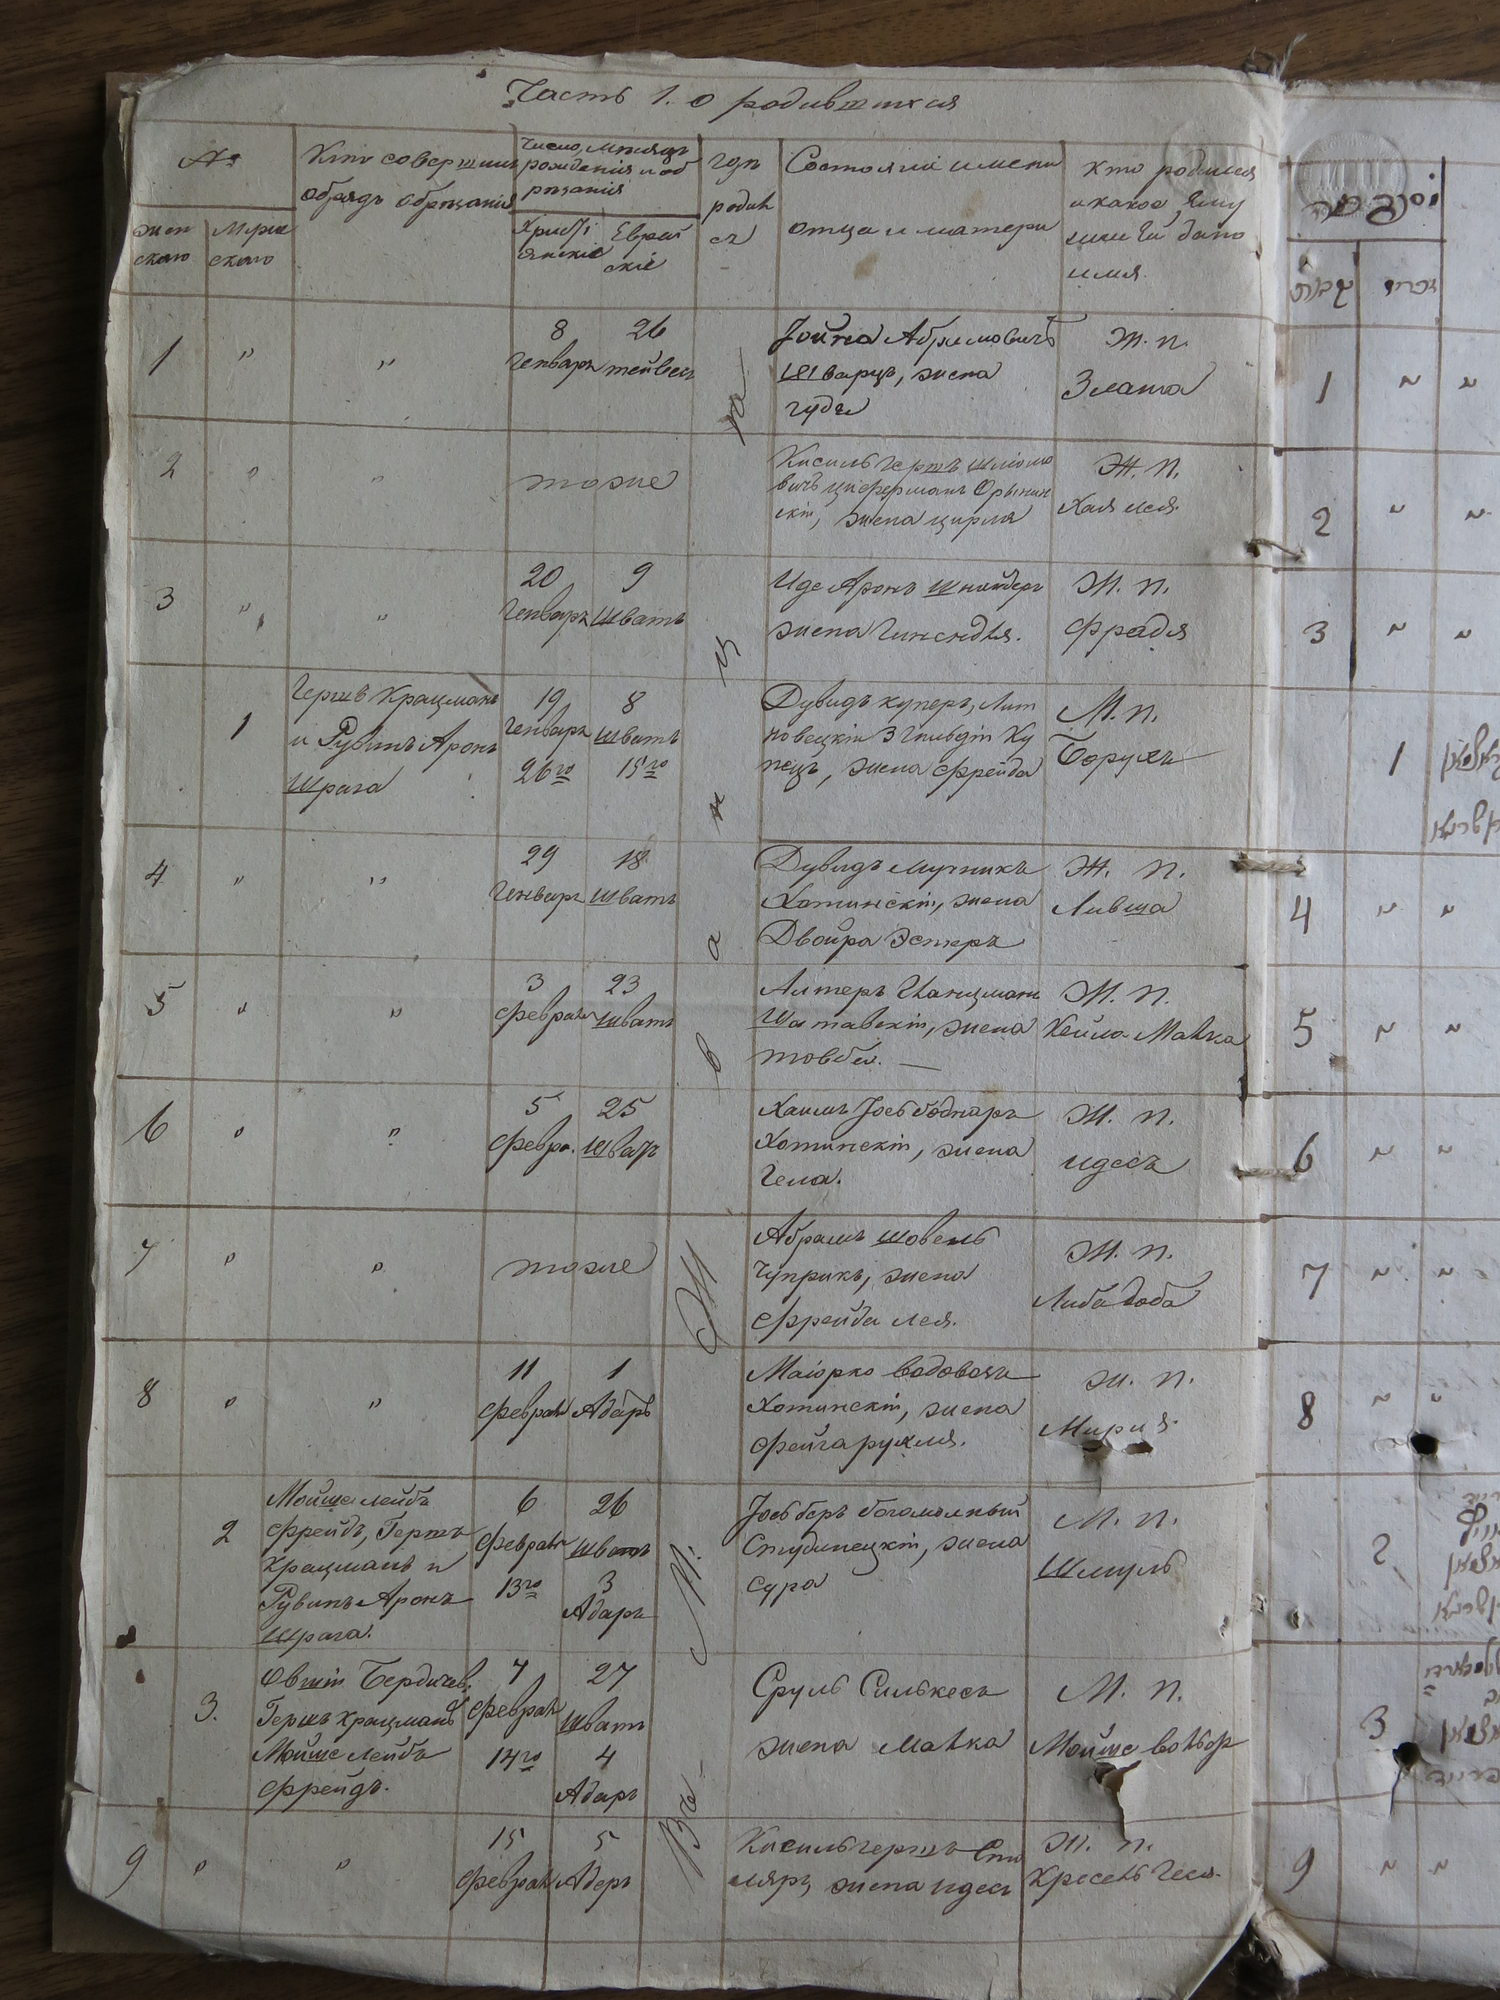 Часть 1. о родившихся
№
Кто совершил
обрядъ обрѣзанія
Число, мѣсяцъ
рожденія и об
рѣзанія
годъ
родил
ся
Состояніе имена
отца и матери
Кто родился
и какое ему
или ей дано
имя.
жен
скаго
Муже
скаго
Христі
янскіе
Еврей
скіе
1 " "
8 26
Генваря тейвесъ
Іойна Абрамовичъ
Шварцъ, жена
гудя
Ж. п.
Злата
2 " "
тоже
Кисиль Гершъ Шліомо
вичъ Циферманъ Орынин
скій, жена цирля
Ж. п.
Хая лея.
3 " "
20 9
Генваря Шватъ
Иде Аронъ Шнайдеръ
жена Гинендля.
Ж. п.
Фрадя
1
Гершъ Крацманъ
и Рувинъ Аронъ
Шрага
19 8
Генваря Шватъ
26го 15го
Дувидъ куперъ, Лит
новецкій 3 Гильдіи Ку
пецъ, жена Фрейда
М. п.
Борухъ
4 " "
29 18
Генваря Шватъ
Дувидъ мучникъ
Хотинскій, жена
Двойра Эстеръ
Ж. п.
Ливша
5 " "
3 23
Февраля Шватъ
Алтеръ Ганцманъ
Шатавскій, жена
товба. —
Ж. п.
Кейла Малка
6 " "
5 25
Февра. Шватъ
Хаимъ Іось боднаръ
Хотинскій, жена
Гела.
Ж. п.
Идесъ
7 " "
тоже
Абрамъ Шовель
Чуприкъ, жена
Фрейда лея.
Ж. п.
Либа доба
8 " "
11 1
Февраля Адаръ
Маіорко водовозъ
Хотинскій, жена
Фейга рухля.
Ж. п.
Мирия
2
Мойше лейбъ
Фрейдъ, Гершъ
Крацманъ и
Рувинъ Аронъ
Шрага.
6 26
Февраля Шватъ
13го 3
Адаръ
Іось беръ богомольный
Студинецкій, жена
Сура
М. п.
Шмуль
3.
Овшій Бердичев.
Гершъ крацманъ
Мойше Лейбъ
Фрейдъ.
7 27
Февраля Шватъ
14го 4
Адаръ
Сруль Силькесъ
жена Малка
М. п.
Мойше вольф
9 " "
15 5
Февраля Адаръ
Кисиль гершъ Сто
ляръ, жена Идесъ
Ж. п.
Кресель Геся.
Въ М.
1 " "
2 " "
3 " "
1
4 " "
5 " "
6 " "
7 " "
8 " "
2
3
9 " "